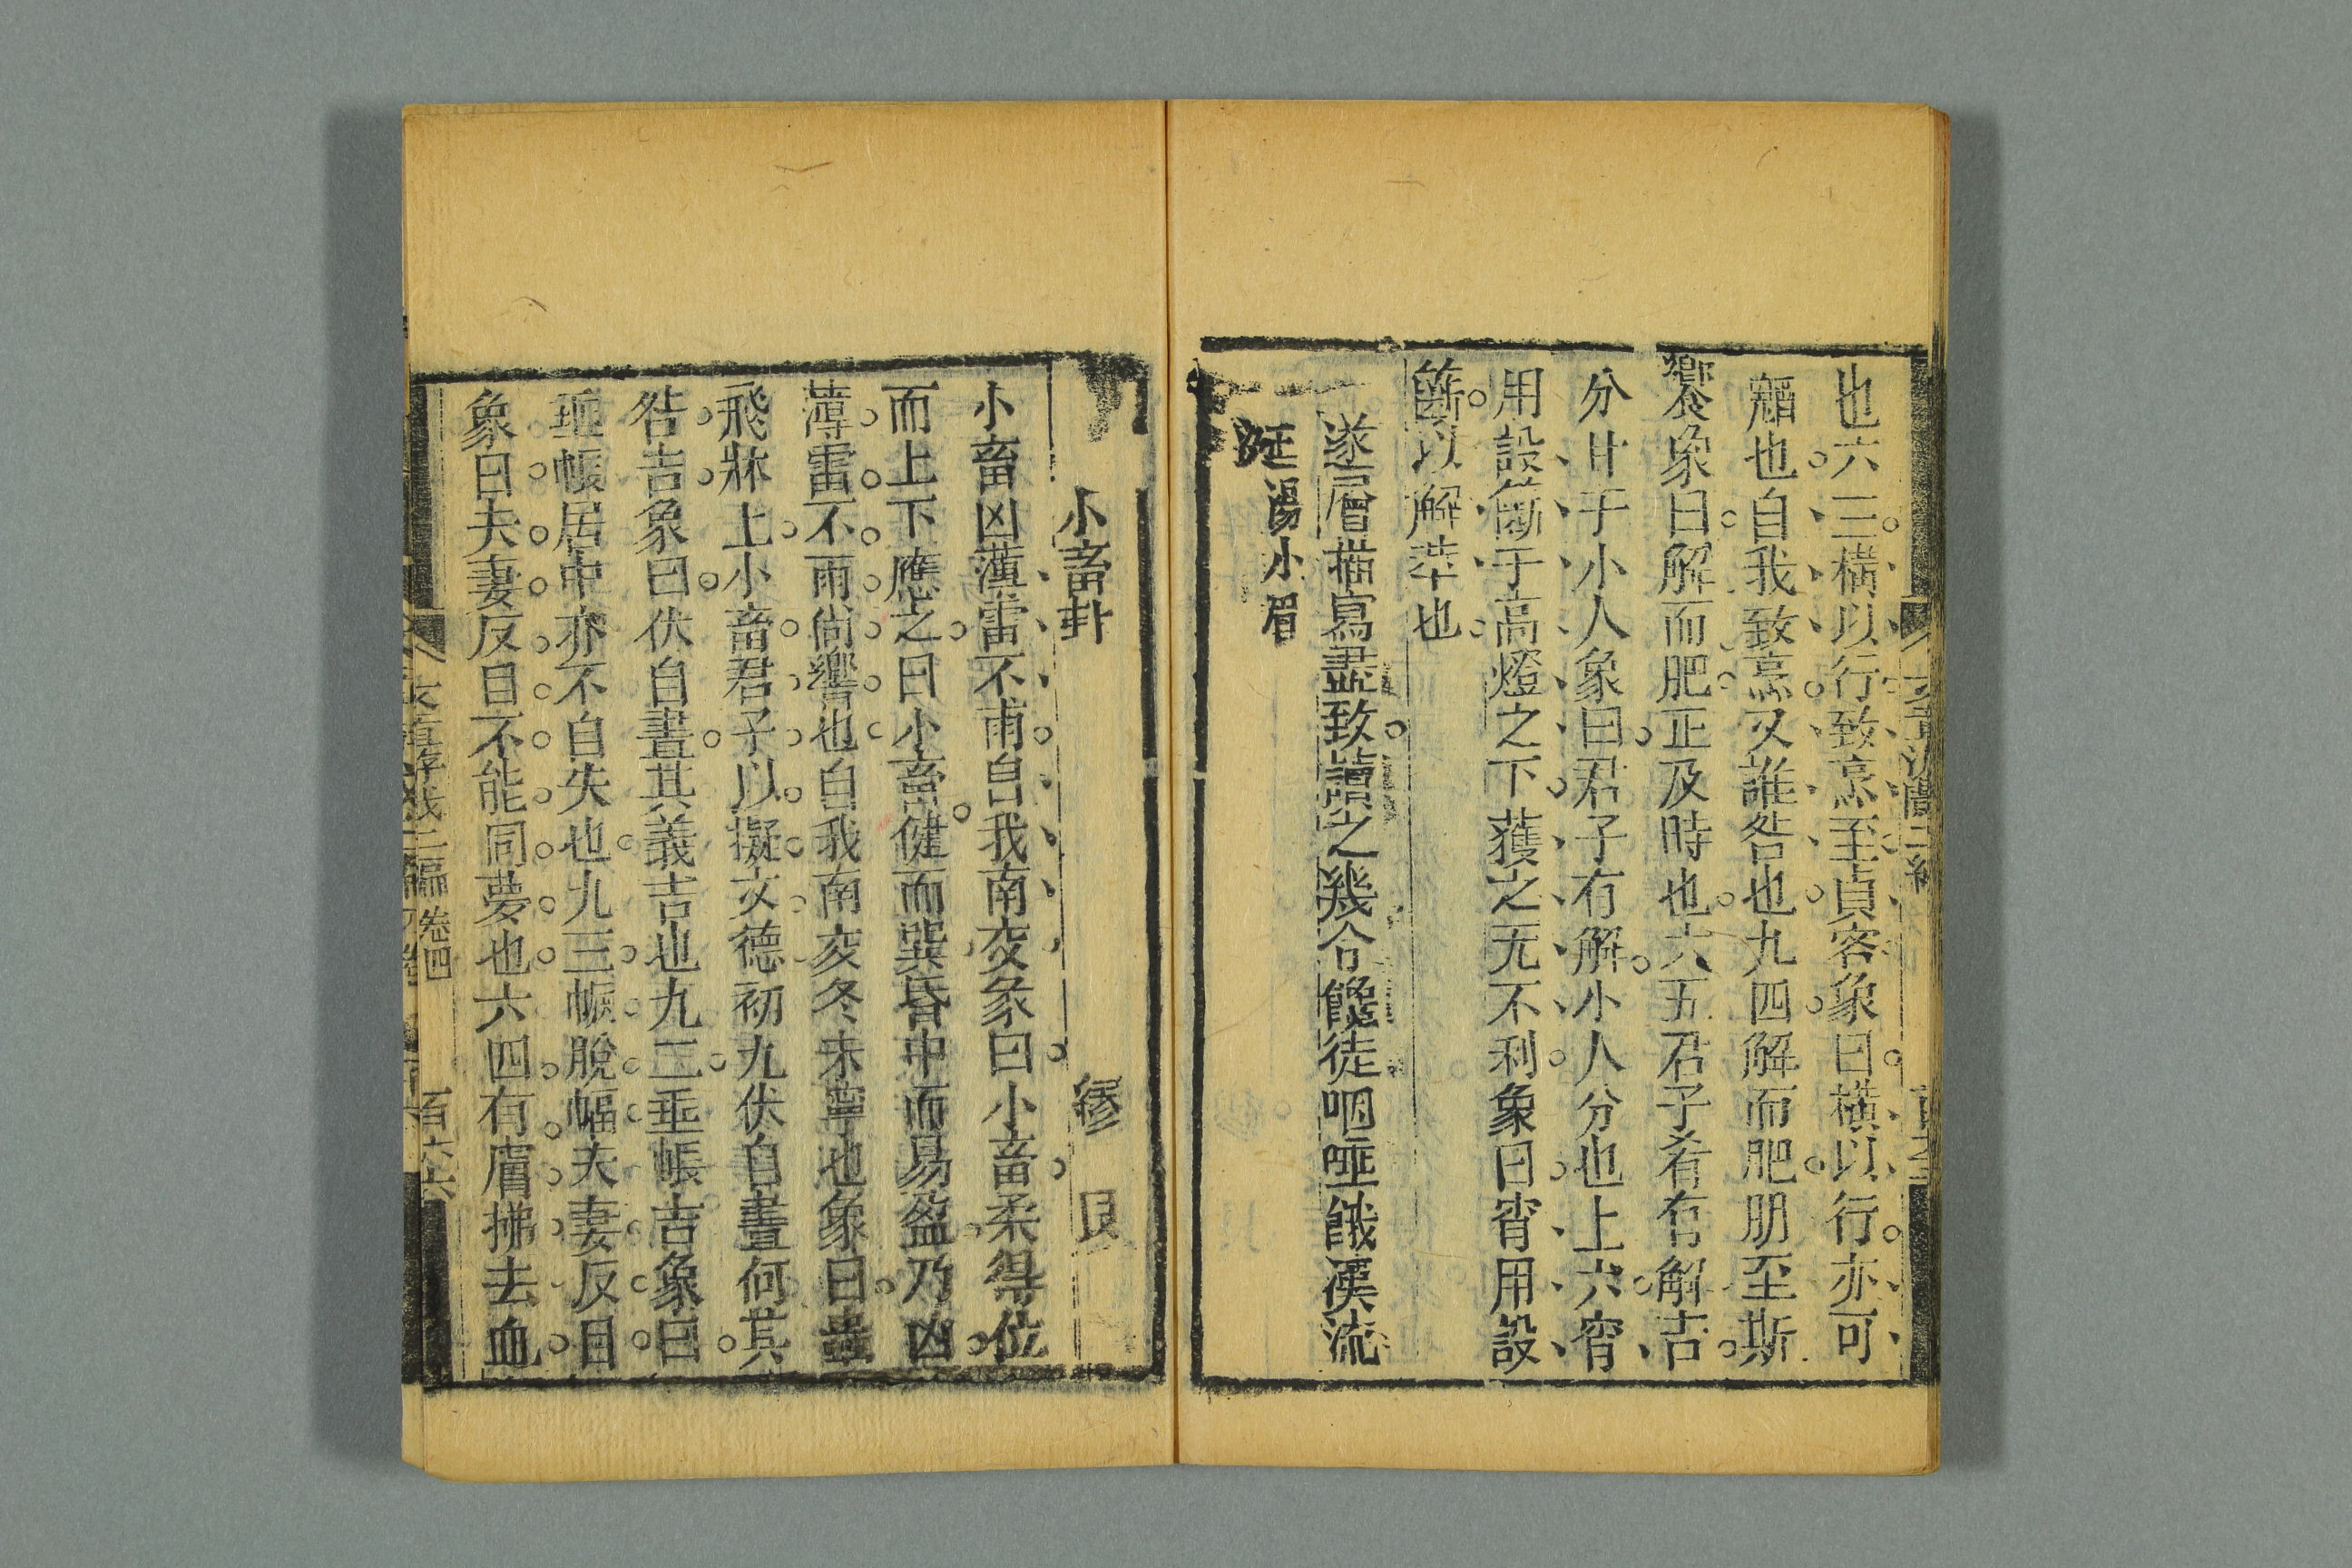 也六三橫以行致烹至貞容象曰橫以行亦可
也自我致烹又誰咎也九四解而肥朋至斯
饗象曰解而肥正及時也六五君子肴有解吉
分甘于小人象曰君子有解小人分也上六宵
用設籪于高燈之下獲之无不利象曰宵用設
籪以解萃也
逐層描寫盡致讀之幾令饞徒咽唾餓漢流
涎 湯小眉
小畜卦 繆艮
小畜凶薄雷不雨自我南交彖曰小畜柔得位
而上下應之曰小畜健而巽昏中而易盈乃凶
薄雷不雨尚響也自我南交冬未寧也象曰
飛牀上小畜君子以擬文德初九伏自晝何其
咎吉象曰伏自晝其義吉也九二垂帳吉象曰
垂帳居中亦不自失也九三帳脫幅夫妻反目
象曰夫妻反目不能同夢也六四有膚拂去血
三編 卷四 百六六